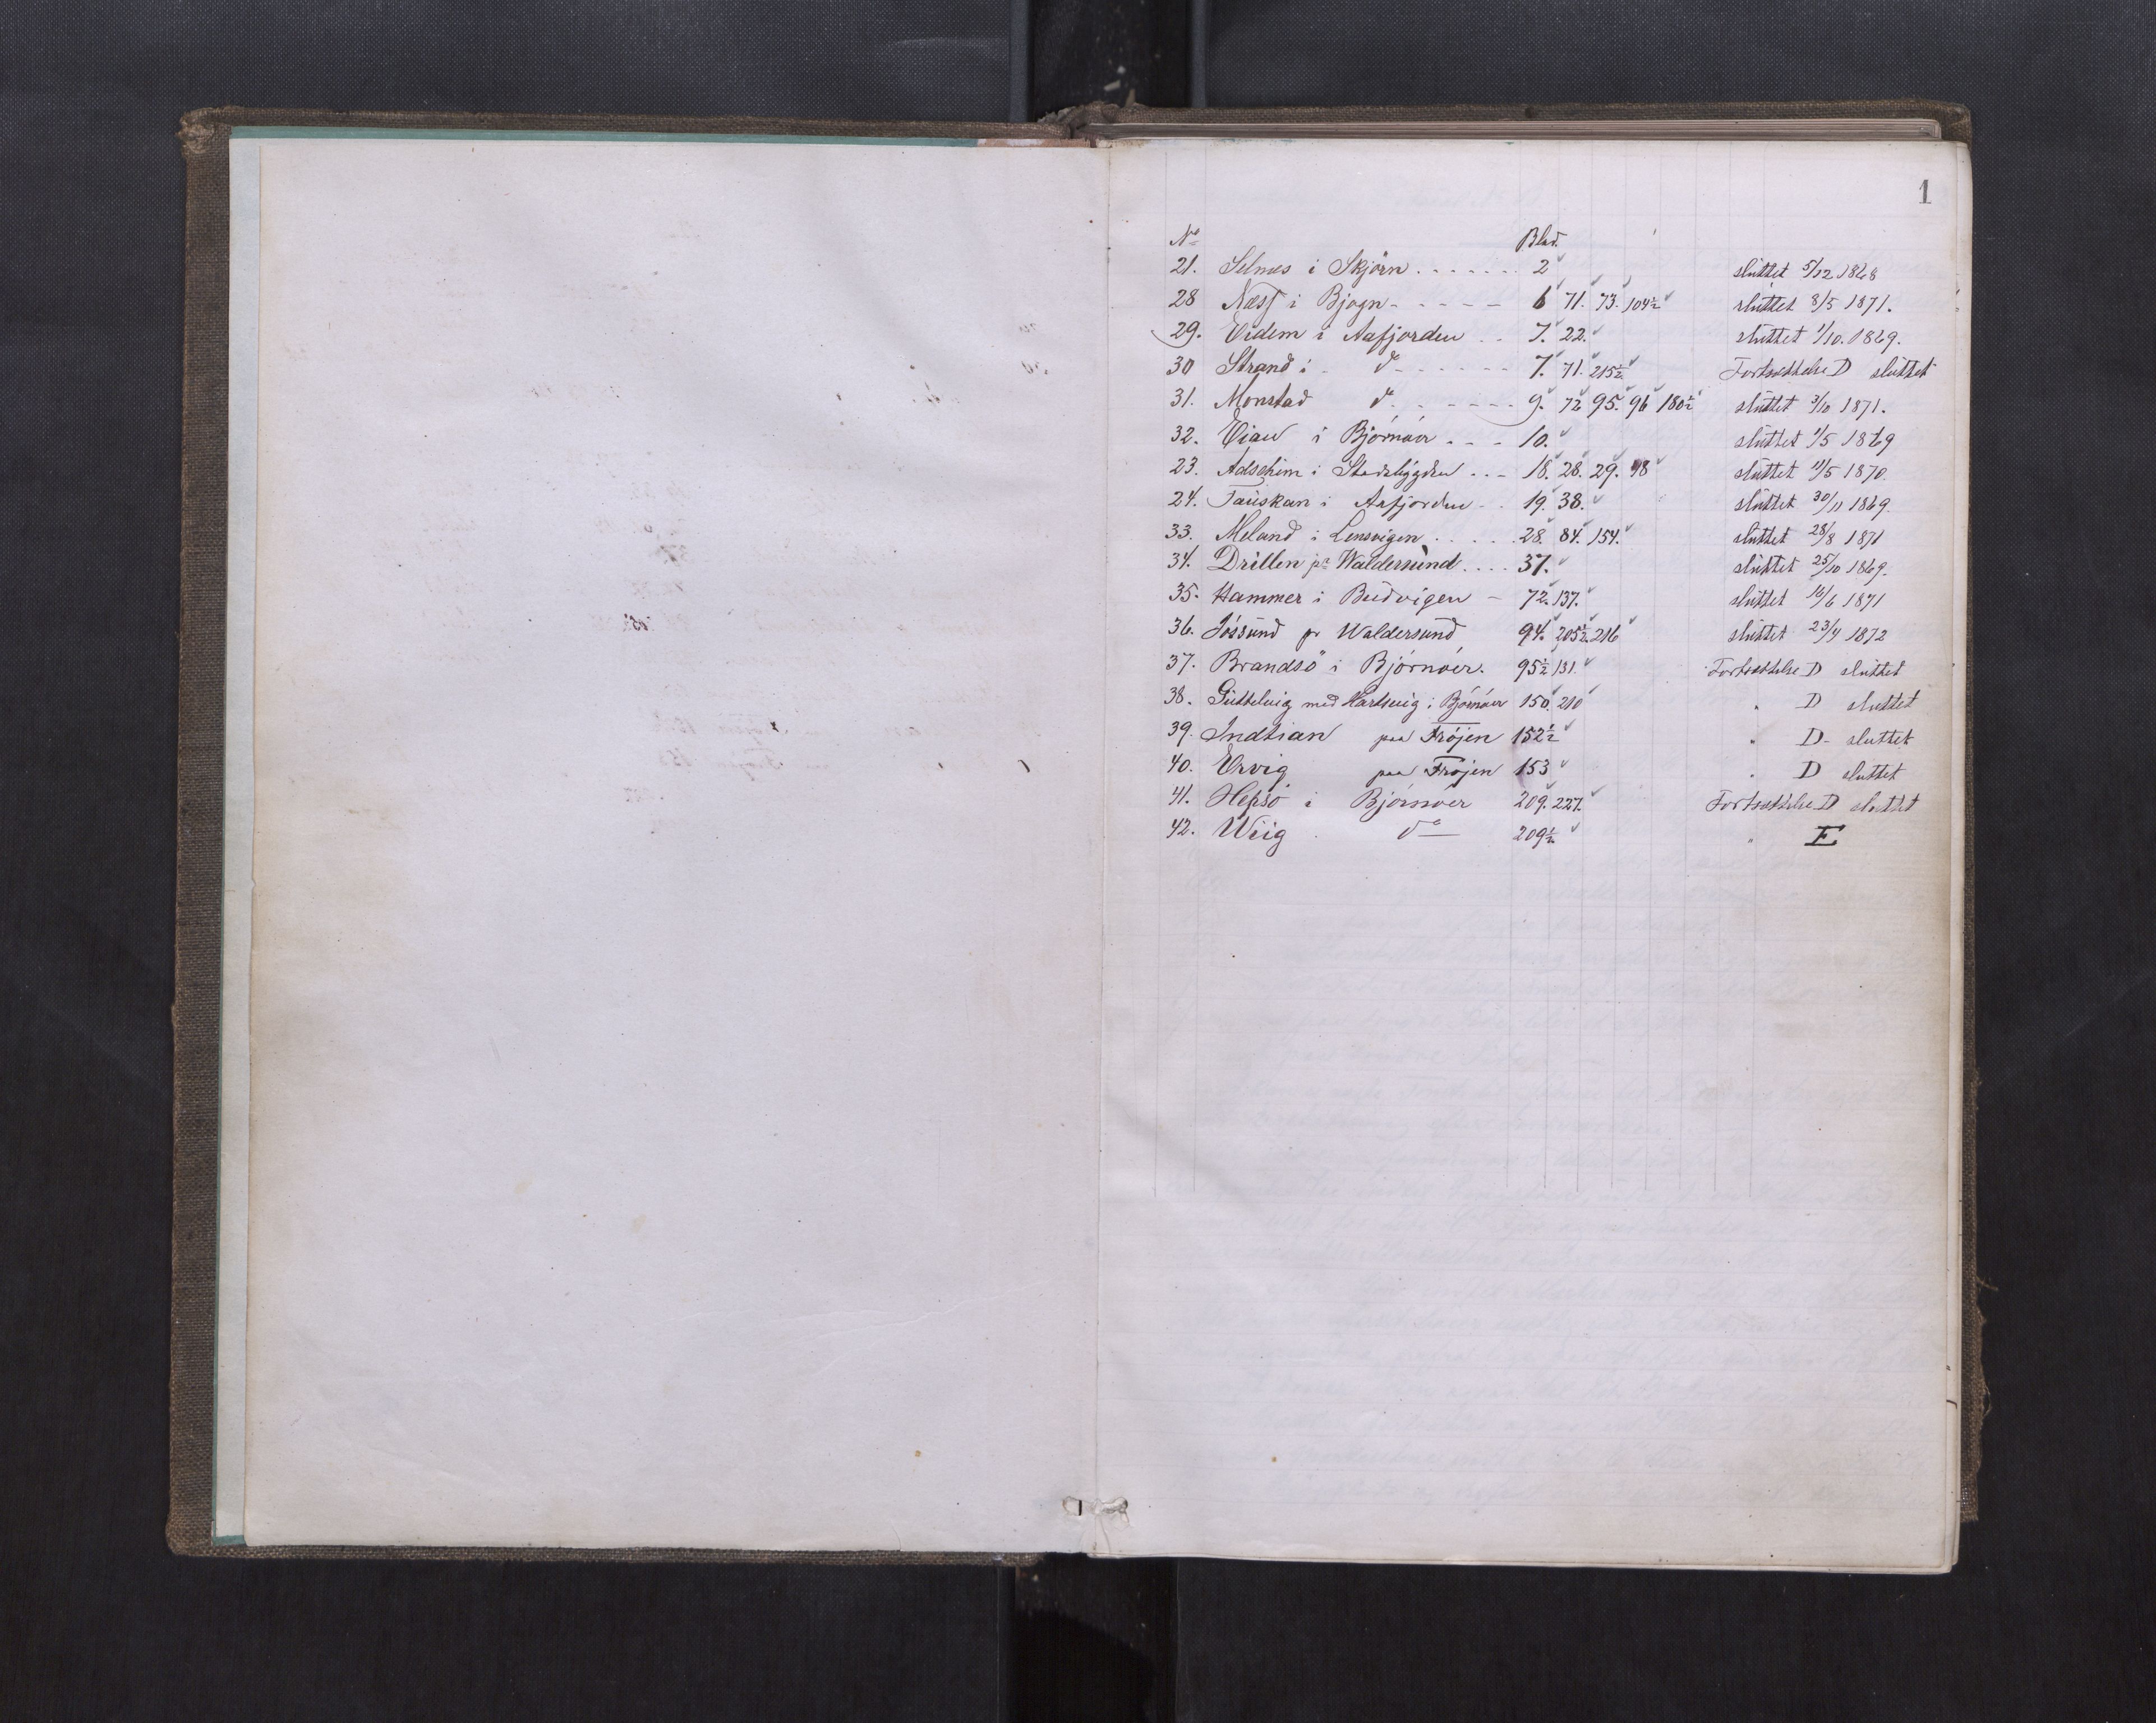 1
No Blad.
21. Selnes i Skjörn ....... 2 sluttet 5/12 1868
28 Næss i Bjugn - - - - - 6 71. 73. 104½ sluttet 8/5 1871.
29. Eidem i Aafjorden .. 7. 22. sluttet 1/10. 1869.
30 Strand i - do - - - - - - 7. 71. 215½ Fortsættelse D sluttet
31. Monstad do - - - - - 9. 72 95. 96 180½ sluttet 3/10 1871.
32. Eian i Björnöer - - - 10. sluttet 1/5 1869
23. Adseheim i Stadsbygden - - - 18. 28. 29. 48 sluttet 11/5 1870.
24. Tauskan i Aafjorden - . 19. 38. sluttet 30/11 1869.
33. Meland i Lensvigen ..... 28. 84. 154. sluttet 28/8 1871
34. Drillen pr Waldersund .... 37. sluttet 25/10 1869.
35. Hammer i Budvigen - 72. 137. sluttet 16/6 1871
36. Jössund pr Waldersund 94. 205½. 216 sluttet 23/4 1872
37. Brandsö i Björnöer. 95½ 131. Fortsættelse D sluttet
38. Guttelvig med Hartsvig i Björnöer 150. 210 " D sluttet
39. Indtian paa Fröjen 152½ " D - sluttet
40. Ervig paa Fröjen 153 " D sluttet
41. Hepsö i Björnöer 209. 227. Fortsættelse D sluttet
42. Wiig do 209½ " E